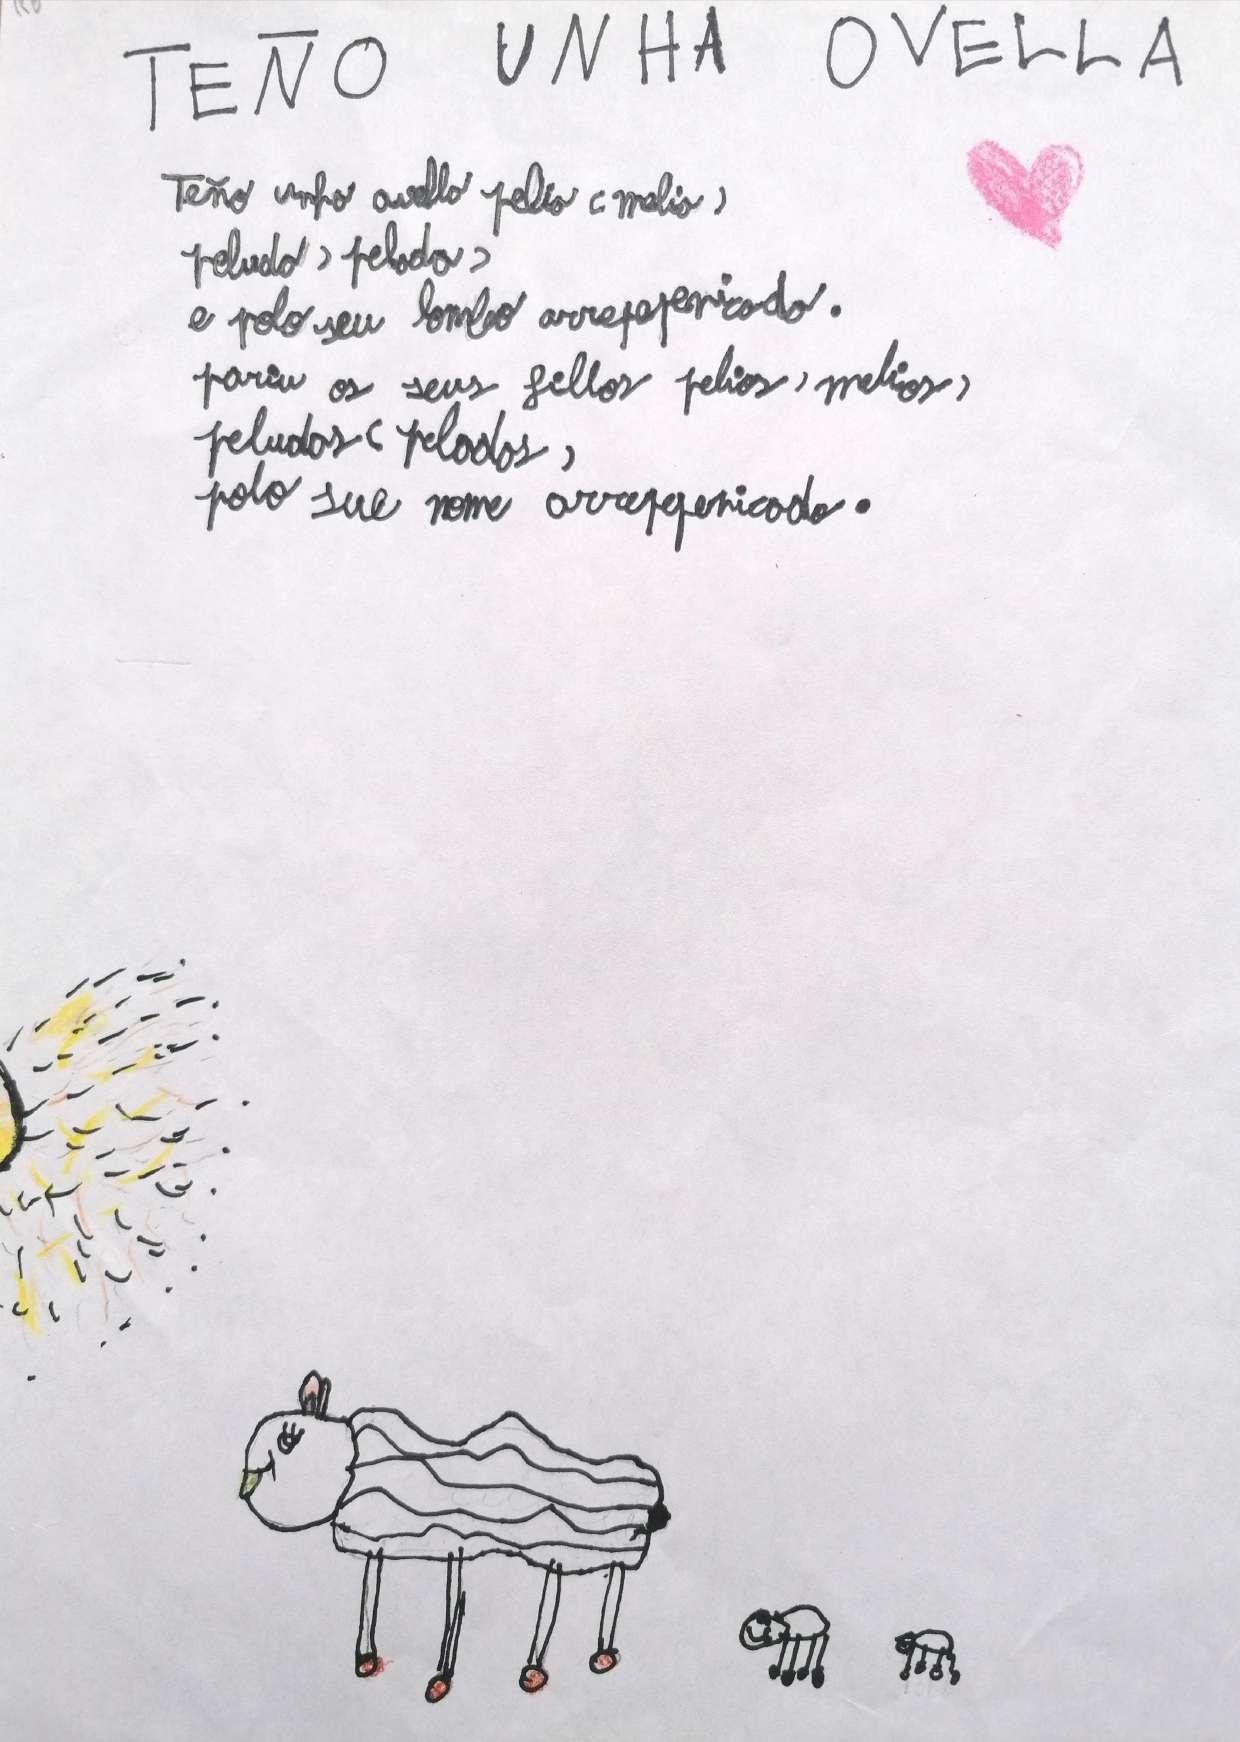 TEÑO UNHA OVELLA
Teño unha ovella pelia, melia,
peluda, pelada,
e polo seu lombo arrepepenicado.
pariu os seus fillos pelios, melios,
peludos, pelados,
polo sue nome arrepepenicado.